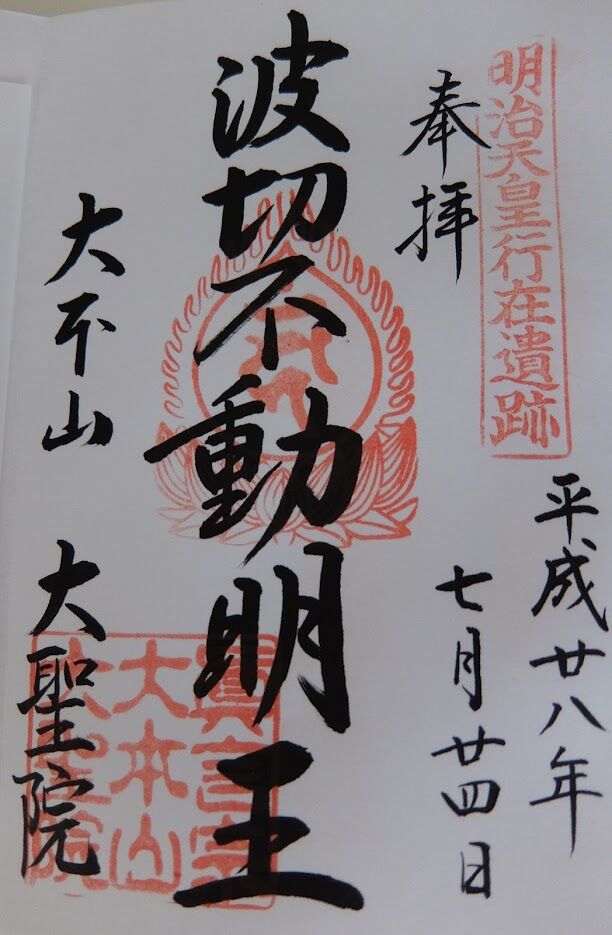 明治天皇行在遺跡
奉拝
平成廿八年
七月廿四日
波切不動明王
大本山
大聖院
真言宗
大本山
大聖院